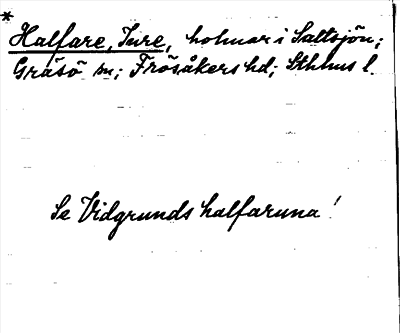 *
Halfare, Ture, holmar i Saltsjön;
Gräsö sn; Frösåkers hd; Sthlms l.
Se Vidgrunds halfaruna!